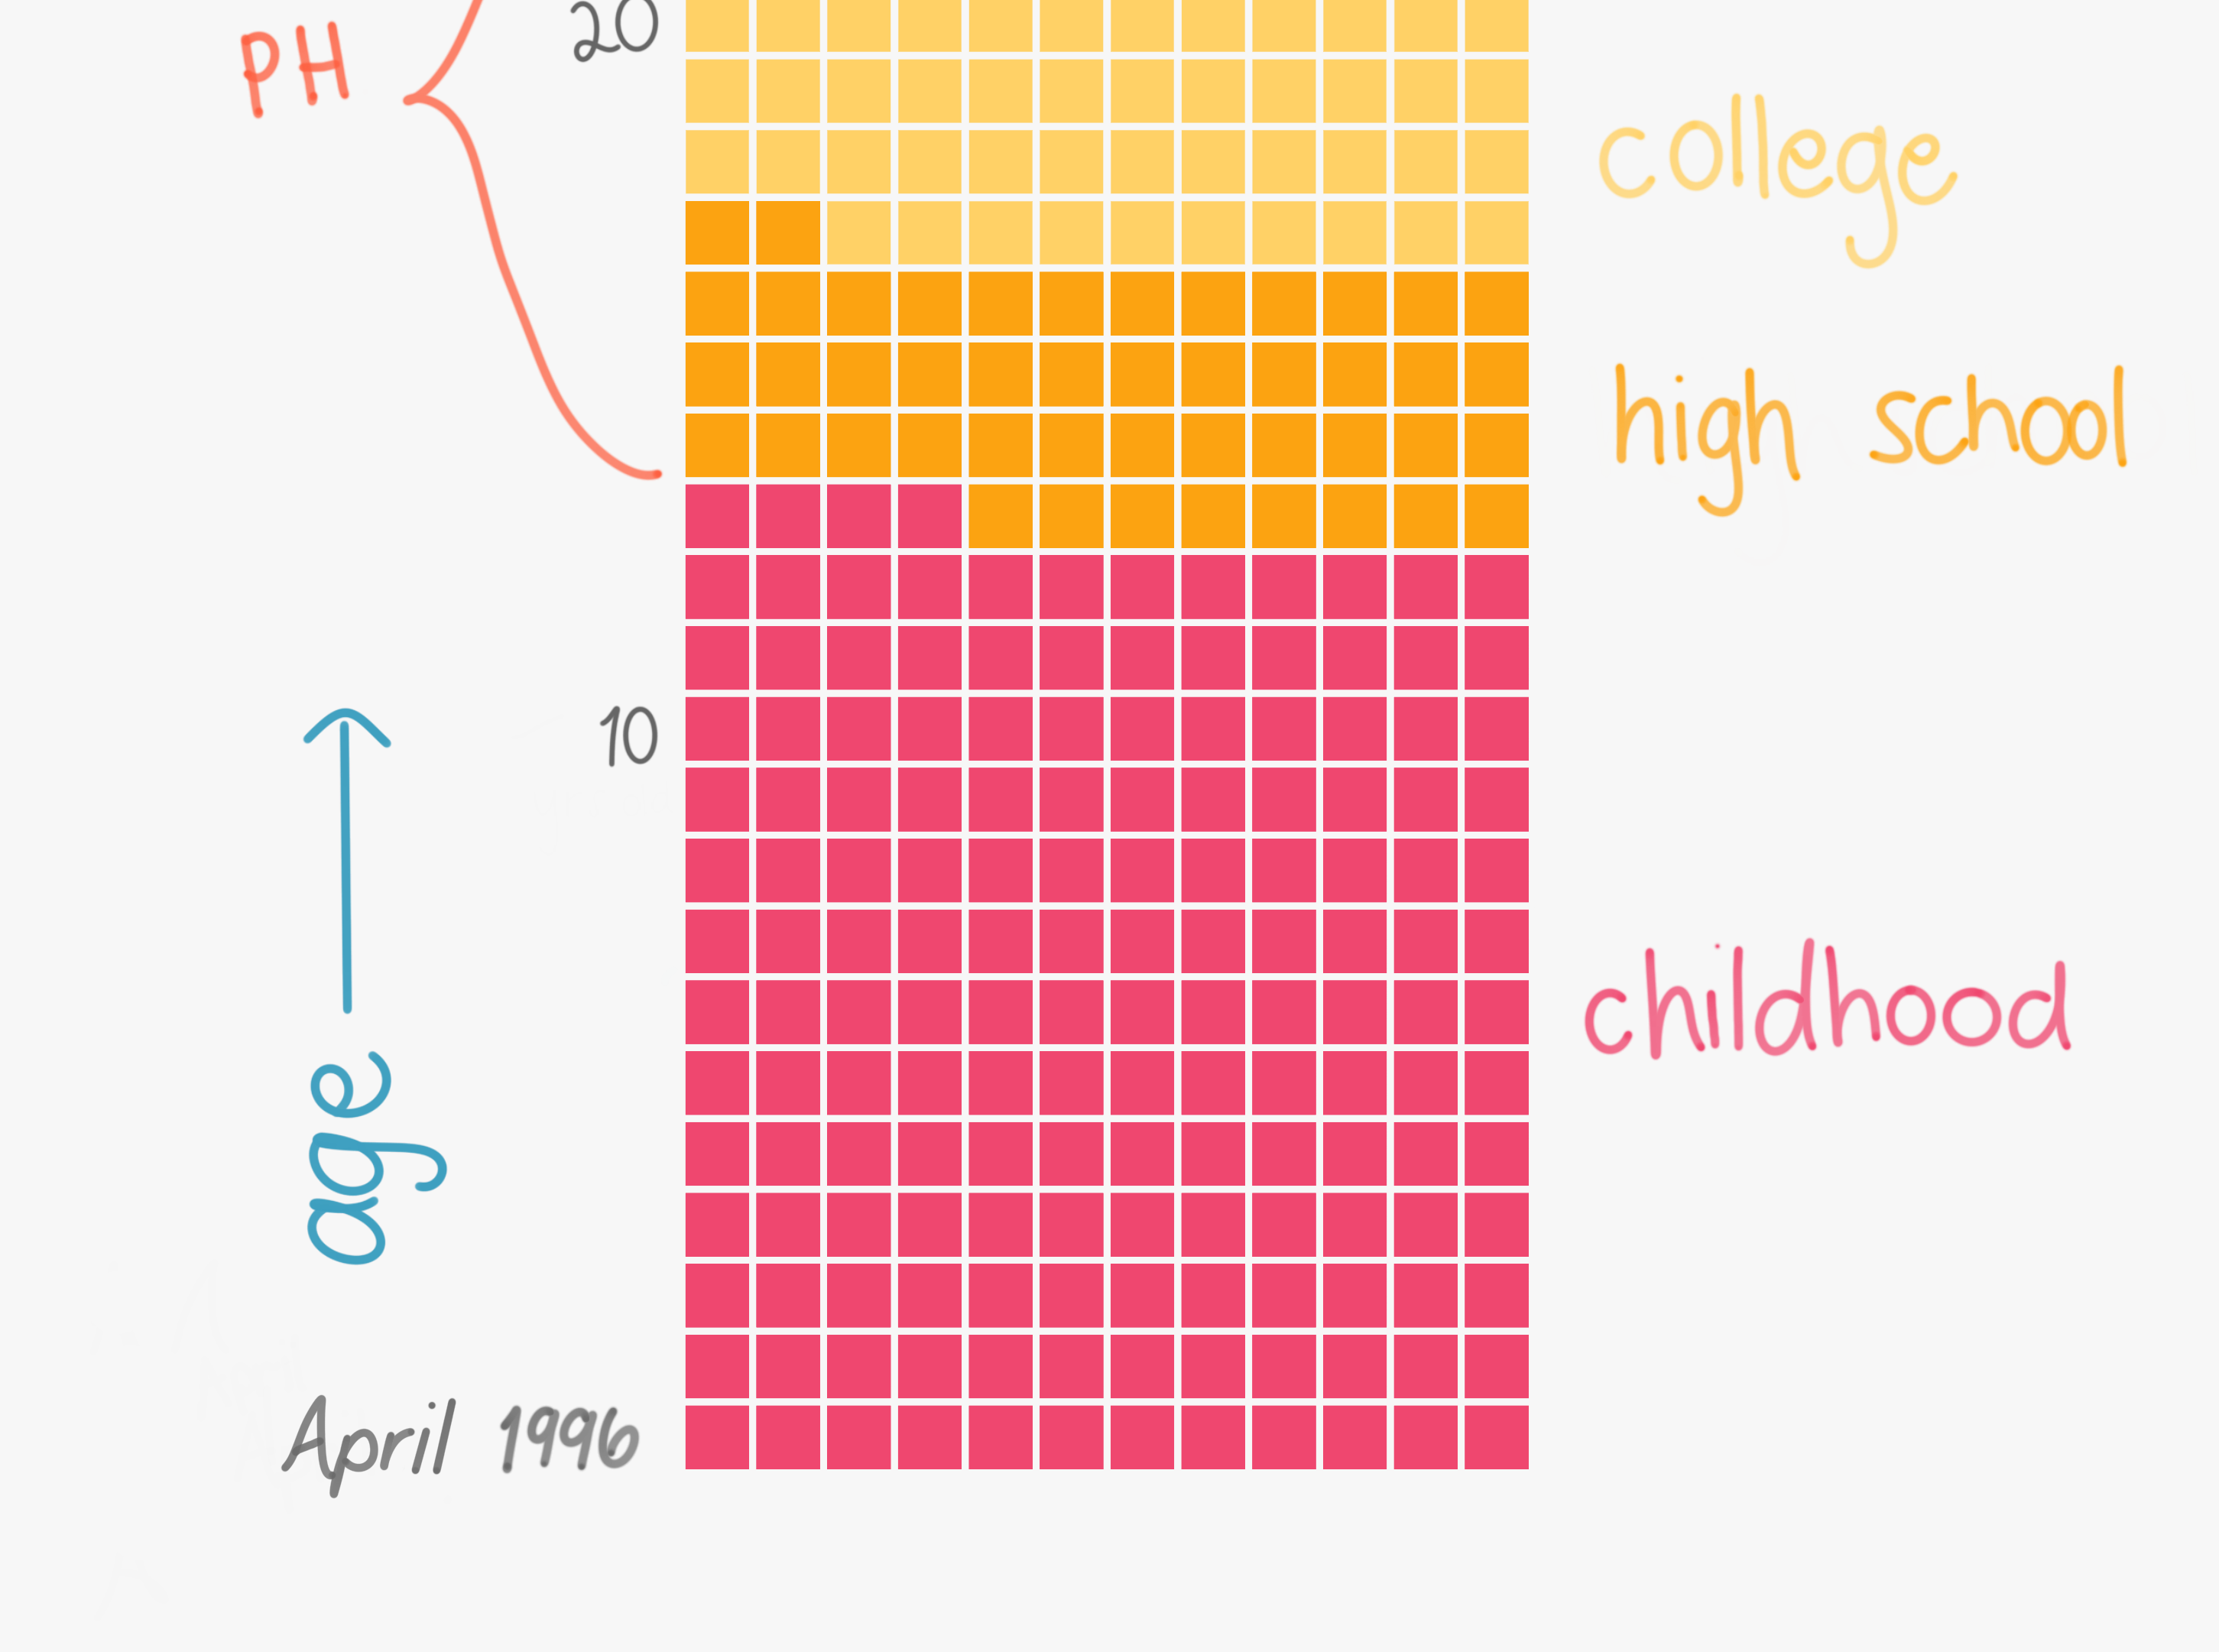 20
PH
college
high school
10
childhood
age
April 1996